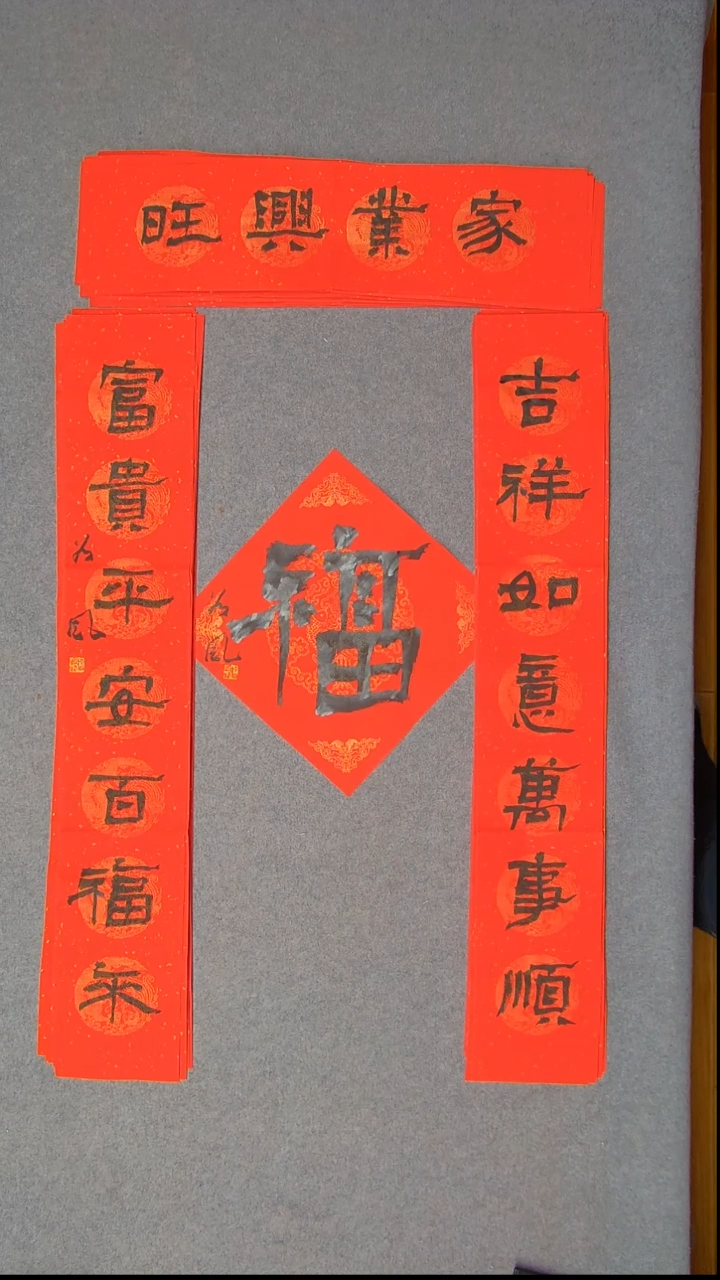 家業興旺
吉祥如意萬事順
富貴平安百福來
福